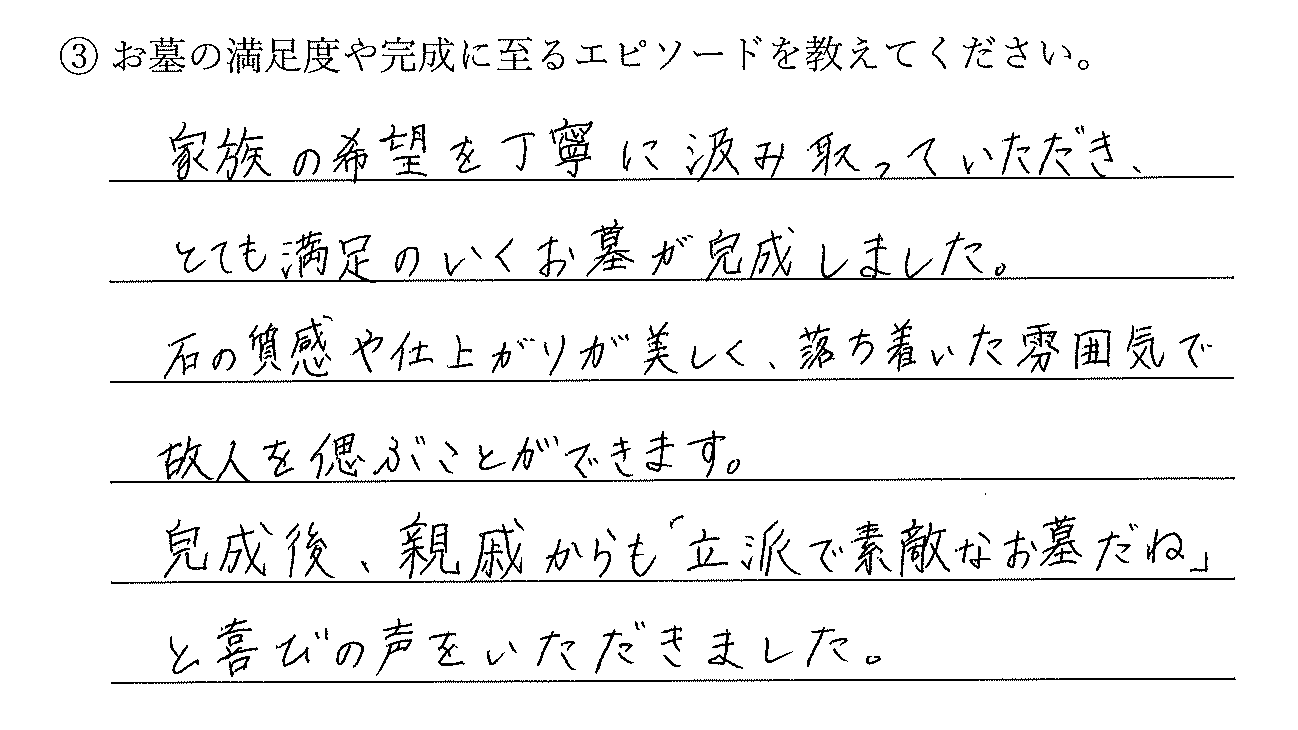 ③ お墓の満足度や完成に至るエピソードを教えてください。
家族の希望を丁寧に汲み取っていただき、
とても満足のいくお墓が完成しました。
石の質感や仕上がりが美しく、落ち着いた雰囲気で
故人を偲ぶことができます。
完成後、親戚からも「立派で素敵なお墓だね」
と喜びの声をいただきました。